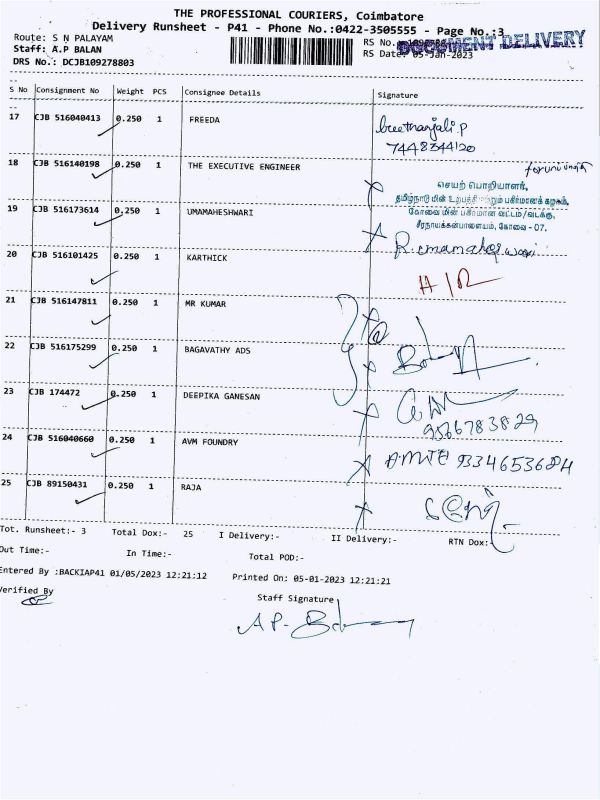 THE PROFESSIONAL COURIERS, Coimbatore
Delivery Runsheet - P41 - Phone No.:0422-3505555 - Page No.:3
Route: S N PALAYAM RS No.
DOCUMENT DELIVERY
Staff: A.P BALAN RS Date: 05-Jan-2023
DRS No.: DCJB109278803
S No Consignment No Weight PCS Consignee Details Signature
17 CJB 516040413 0.250 1 FREEDA
7448344120
18 CJB 516140198 0.250 1 THE EXECUTIVE ENGINEER
செயற் பொறியாளர்,
தமிழ்நாடு மின் உற்பத்தி மற்றும் பகிர்மானக் கழகம்,
கோவை மின் பகிர்மான வட்டம்/வடக்கு,
சீரநாயக்கன்பாளையம், கோவை - 07.
19 CJB 516173614 0.250 1 UMAMAHESHWARI
20 CJB 516101425 0.250 1 KARTHICK
H/R
21 CJB 516147811 0.250 1 MR KUMAR
22 CJB 516175299 0.250 1 BAGAVATHY ADS
23 CJB 174472 0.250 1 DEEPIKA GANESAN
9566783829
24 CJB 516040660 0.250 1 AVM FOUNDRY
9334653684
25 CJB 89150431 0.250 1 RAJA
Tot. Runsheet:- 3 Total Dox:- 25 I Delivery:- II Delivery:- RTN Dox:-
Out Time:- In Time:- Total POD:-
Entered By :BACKIAP41 01/05/2023 12:21:12 Printed On: 05-01-2023 12:21:21
Verified By Staff Signature
A.P-